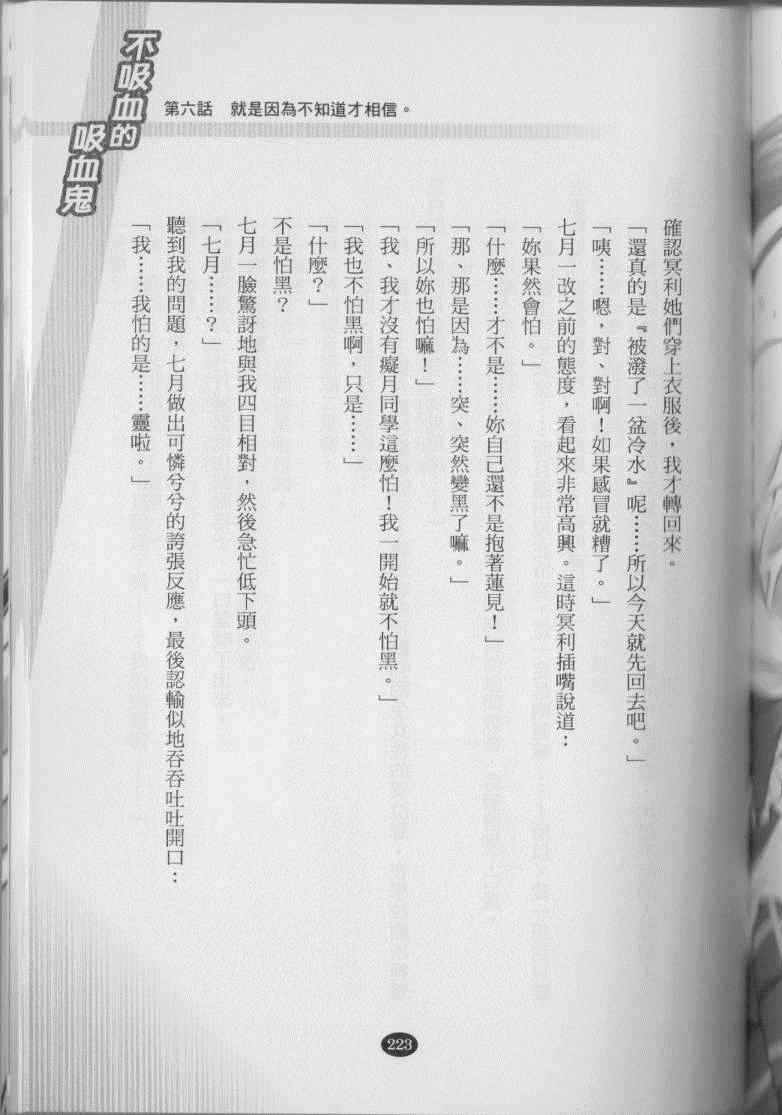 不吸血的
吸血鬼
第六話　就是因為不知道才相信。
確認冥利她們穿上衣服後，我才轉回來。
「還真的是『被潑了一盆冷水』呢……所以今天就先回去吧。」
「咦……嗯，對、對啊！如果感冒就糟了。」
七月一改之前的態度，看起來非常高興。這時冥利插嘴說道：
「妳果然會怕。」
「什麼……才不是……妳自己還不是抱著蓮見！」
「那、那是因為……突、突然變黑了嘛。」
「所以妳也怕嘛！」
「我、我才沒有癡月同學這麼怕！我一開始就不怕黑。」
「我也不怕黑啊，只是……」
「什麼？」
不是怕黑？
七月一臉驚訝地與我四目相對，然後急忙低下頭。
「七月……？」
聽到我的問題，七月做出可憐兮兮的誇張反應，最後認輸似地吞吞吐吐開口：
「我……我怕的是……靈啦。」
223